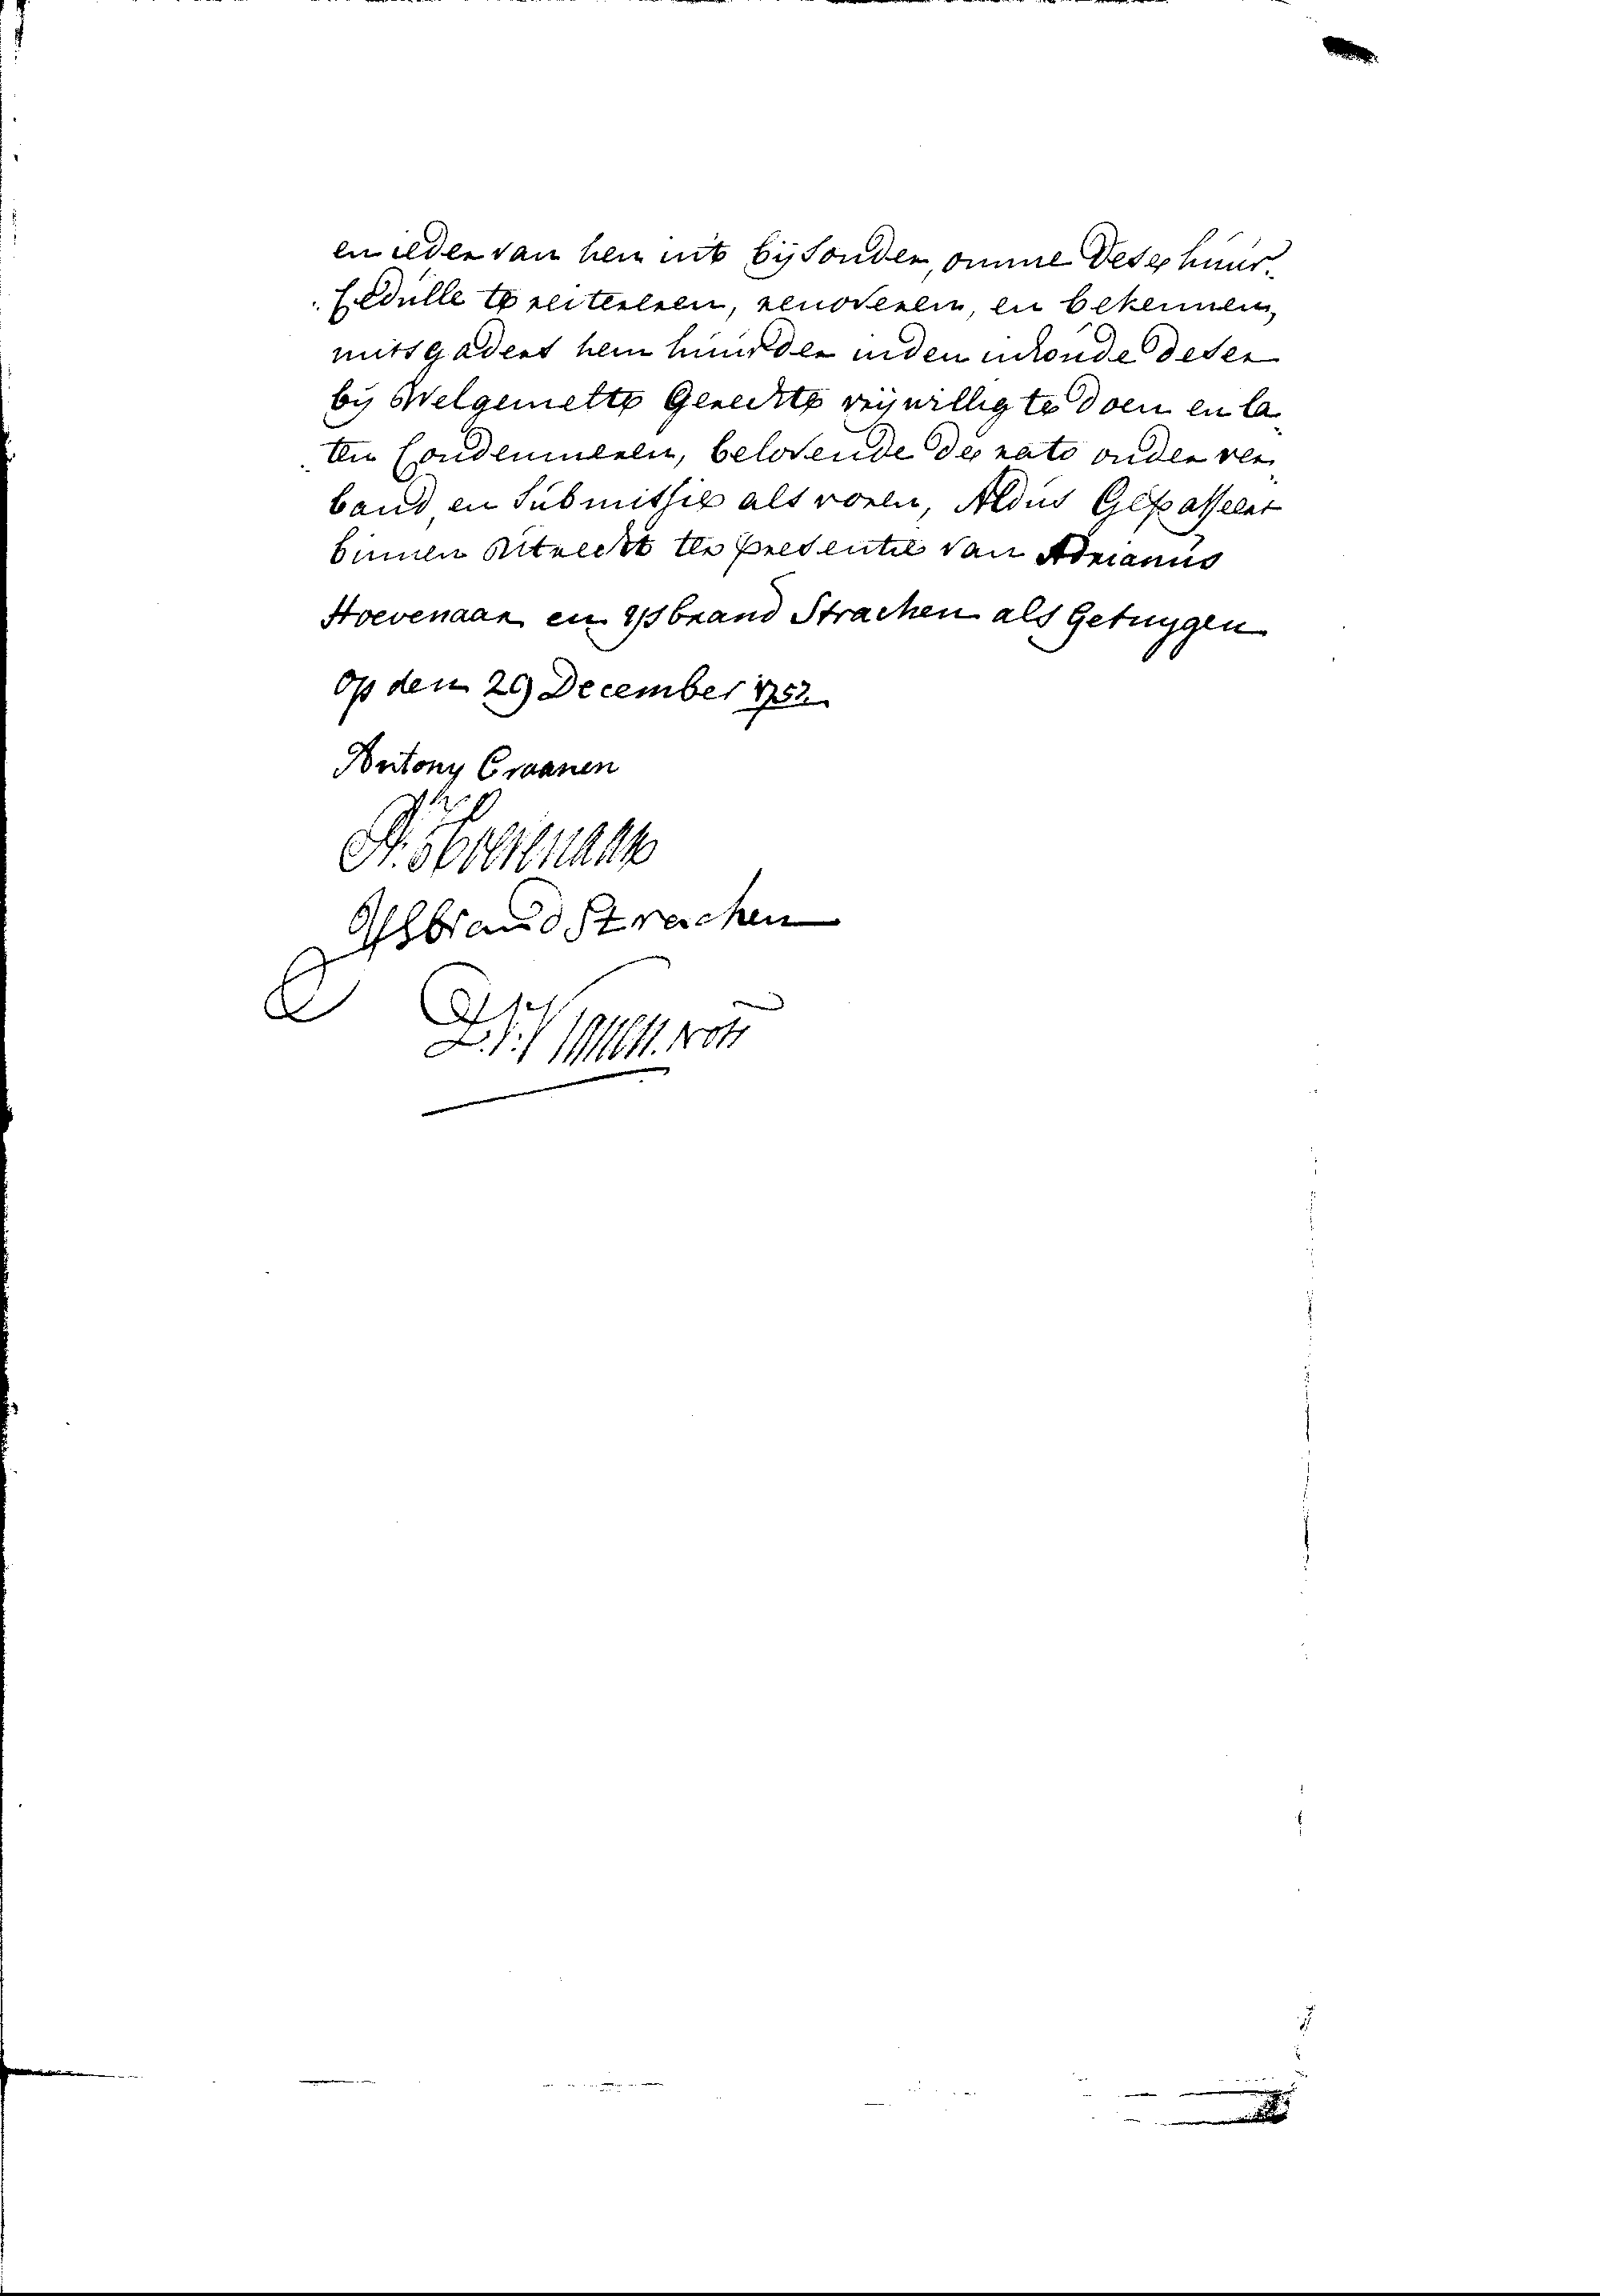 en ieder van hen int bysonder, omme dese huur
Cedulle te reitereren, renoveren, en bekennen,
mitsgaders hem huurder inden inhoude deser
by Welgemelte Gerechte vrywillig te doen en la
ten Condemneren, belovende de rato onder ver
band, en Submissie als voren, Aldus Gepasseert
binnen Utrecht ter presentie van Adrianus
Hoevenaar en IJsbrand Strachen als Getuygen
Op den 29 December 1752
Antony Craanen
A. Hoevenaar
IJsbrand Strachen